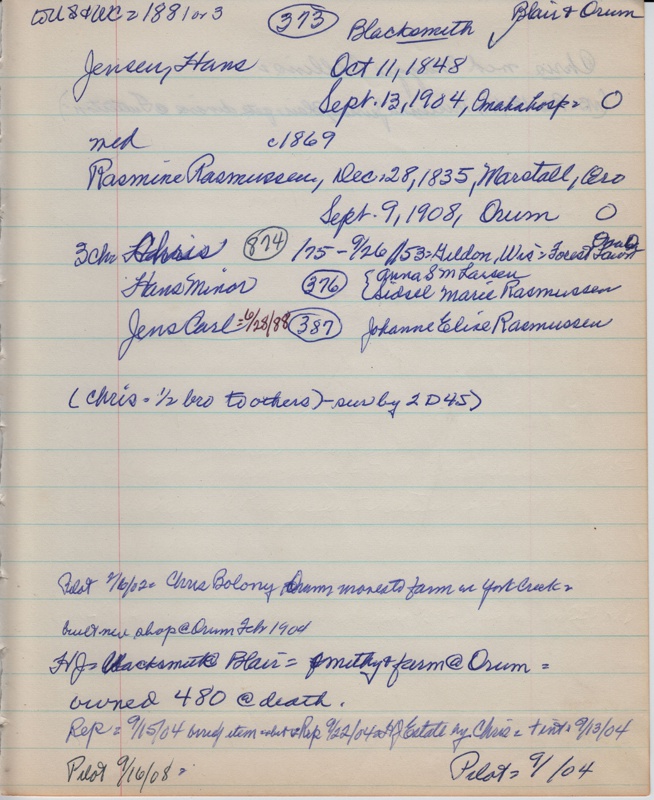 to US & WC = 1881 or 3
373
Blacksmith
Blair & Orum
Jensen, Hans Oct 11, 1848
Sept. 13, 1904, Omaha hosp = O
med c1869
Rasmine Rasmussen, Dec. 28, 1835, Marstall, Aro
Sept. 9, 1908, Orum O
3 ch = Chris 874 /75 - 9/26/53 = Wis = Forest
Hans Minor 376 { Anna S M Larsen
Sidsel Marie Rasmussen
Jens Carl = 6/28/88 387 Johanne Elise Rasmussen
(Chris = 1/2 bro to others) - surv by 2 D 45)
Pilot 2/6/02 = Chris Orum moves to farm on York Creek =
built new shop @ Orum Feb 1904
HJ = blacksmith Blair = smithy & farm @ Orum =
owned 480 @ death.
Rep = 9/15/04 item Rep 9/22/04 = HJ Estate by Chris = + int = 9/13/04
Pilot 9/16/08 =
Pilot = 9/ /04